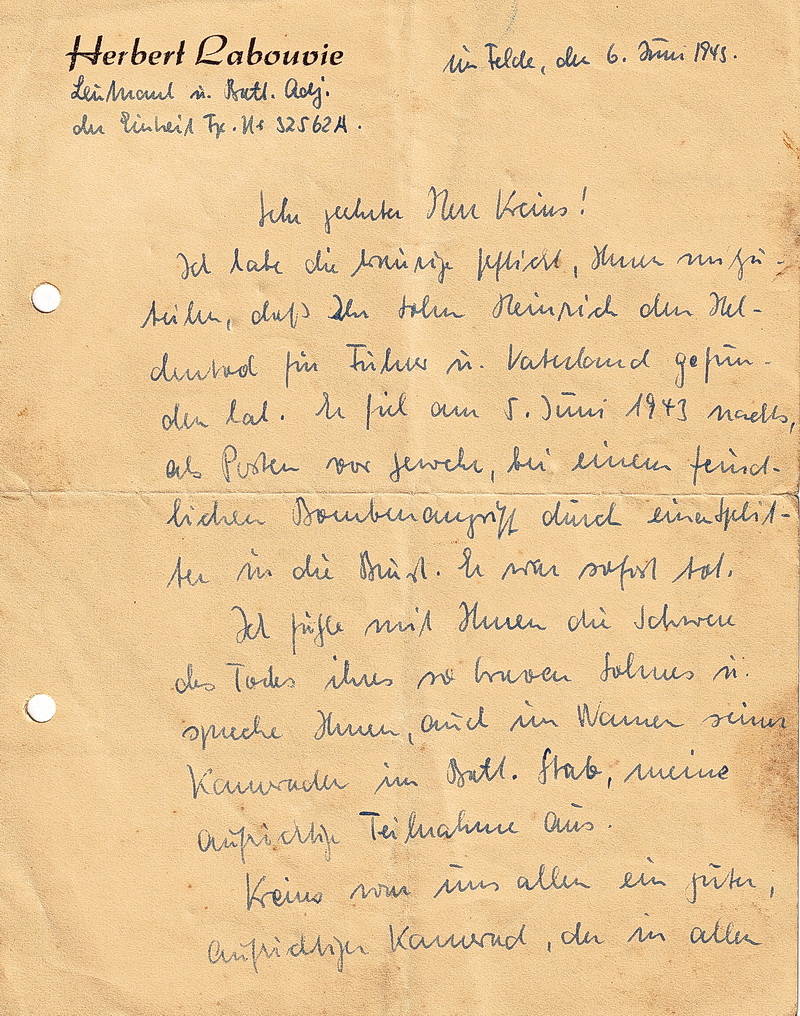 Herbert Labouvie
Leutnant u. Batl. Adj.
der Einheit Fp. Nr 32562A.
im Felde, den 6. Juni 1943.
Sehr geehrter Herr Kreins!
Ich habe die traurige Pflicht, Ihnen mitzu-
teilen, daß Ihr Sohn Heinrich den Hel-
dentod für Führer u. Vaterland gefun-
den hat. Er fiel am 5. Juni 1943 nachts,
als Posten vor Gewehr, bei einem feind-
lichen Bombenangriff durch einen Split-
ter in die Brust. Er war sofort tot.
Ich fühle mit Ihnen die Schwere
des Todes ihres so braven Sohnes u.
spreche Ihnen, auch im Namen seiner
Kameraden im Batl. Stab, meine
aufrichtige Teilnahme aus.
Kreins war uns allen ein guter,
aufrichtiger Kamerad, der in allen